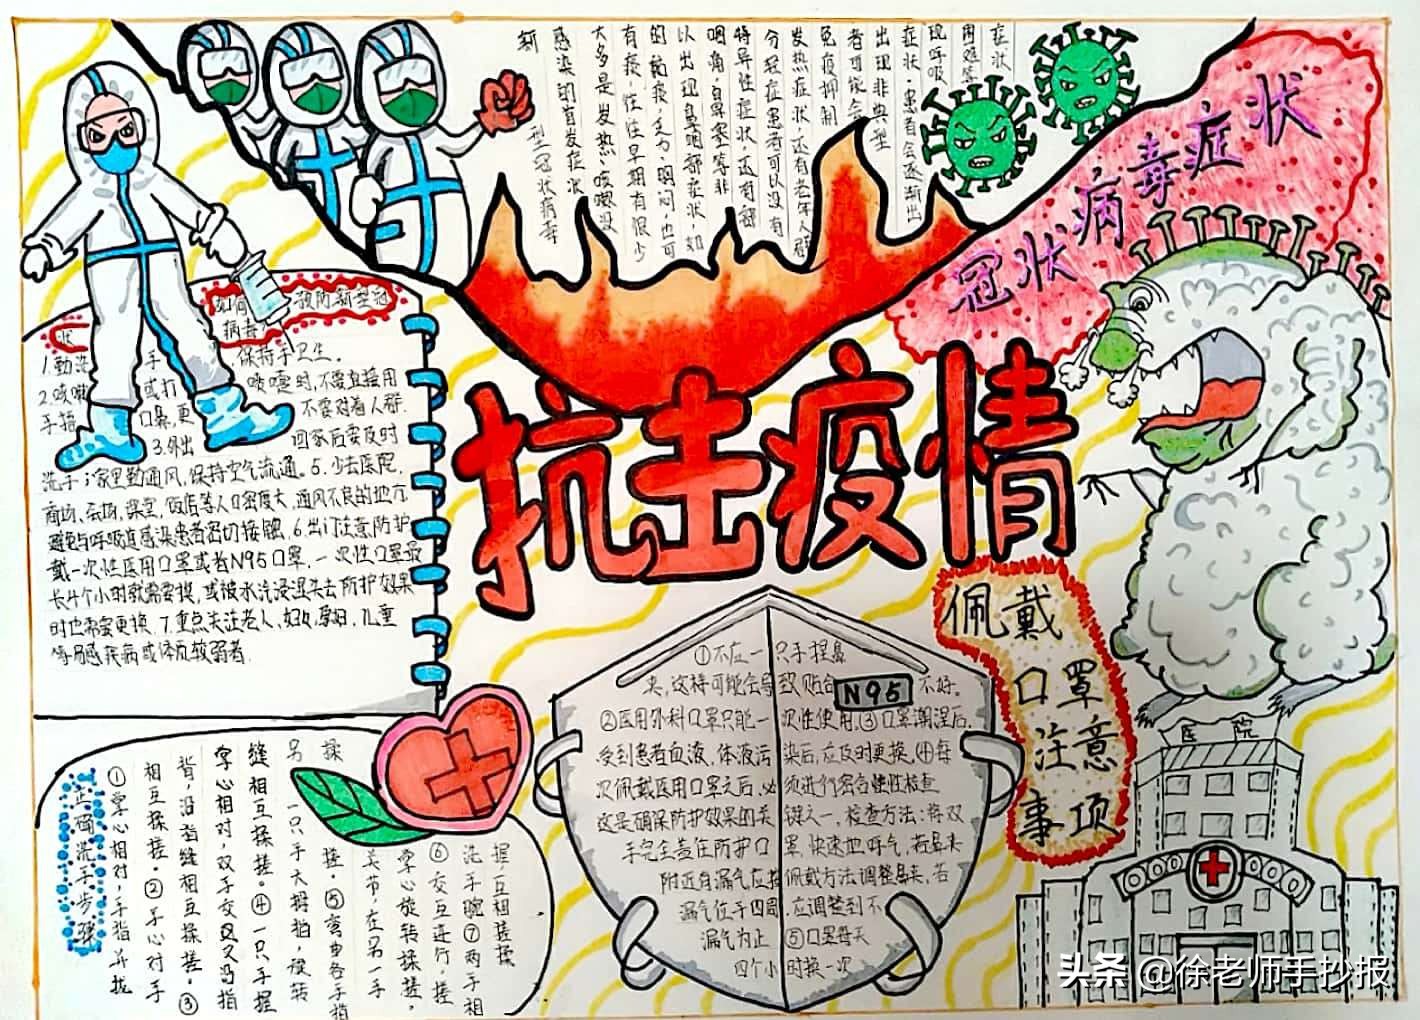 新型冠状病毒
感染的首发症状
大多是发热、咳嗽没
有痰,往往早期有很少
的粘痰,乏力、胸闷,也可
以出现鼻咽部症状,如
咽痛,鼻塞等非
特异性症状,还有部
分轻症患者可以没有
发热症状,还有老年人群
免疫抑制
者可能会
出现非典型
症状,患者会逐渐出
现呼吸
困难等
症状
冠状病毒症状
抗击疫情
如何预防新型冠
状病毒
1.勤洗手 保持手卫生。
2.咳嗽或打喷嚏时,不要直接用
手捂口鼻,更不要对着人群.
3.外出回家后要及时
洗手;家里勤通风,保持空气流通。5.少去医院,
商场、会场、课堂,饭店等人口密度大,通风不良的地方
避免与呼吸道感染患者密切接触,6.出门注意防护
戴一次性医用口罩或者N95口罩,一次性口罩最
长4个小时就需要换,或被水汽浸湿失去防护效果
时也需要更换.7.重点关注老人,妇女,孕妇,儿童
等易感疾病或体质较弱者.
佩戴
口罩
注意
事项
①不应一只手捏鼻
夹,这样可能会导致贴合 不好。
N95
②医用外科口罩只能一次性使用,③口罩潮湿后,
受到患者血液,体液污染后,应及时更换,④每
次佩戴医用口罩之后,必须进行密合性检查
这是确保防护效果的关键之一,检查方法:将双
手完全盖住防护口罩,快速地呼气,若鼻夹
附近有漏气应按佩戴方法调整鼻夹,若
漏气位于四周,应调整到不
漏气为止 ⑤口罩每天
四个小时换一次
正确洗手步骤
①掌心相对,手指并拢
相互揉搓。②手心对手
背,沿指缝相互揉搓。③
掌心相对,双手交叉沿指
缝相互揉搓。④一只手握
另一只手大拇指,旋转
揉搓。⑤弯曲各手指
关节,在另一手
掌心旋转揉搓,
⑥交互进行,搓
洗手腕⑦两手相
握互相搓揉
医院
头条 @徐老师手抄报